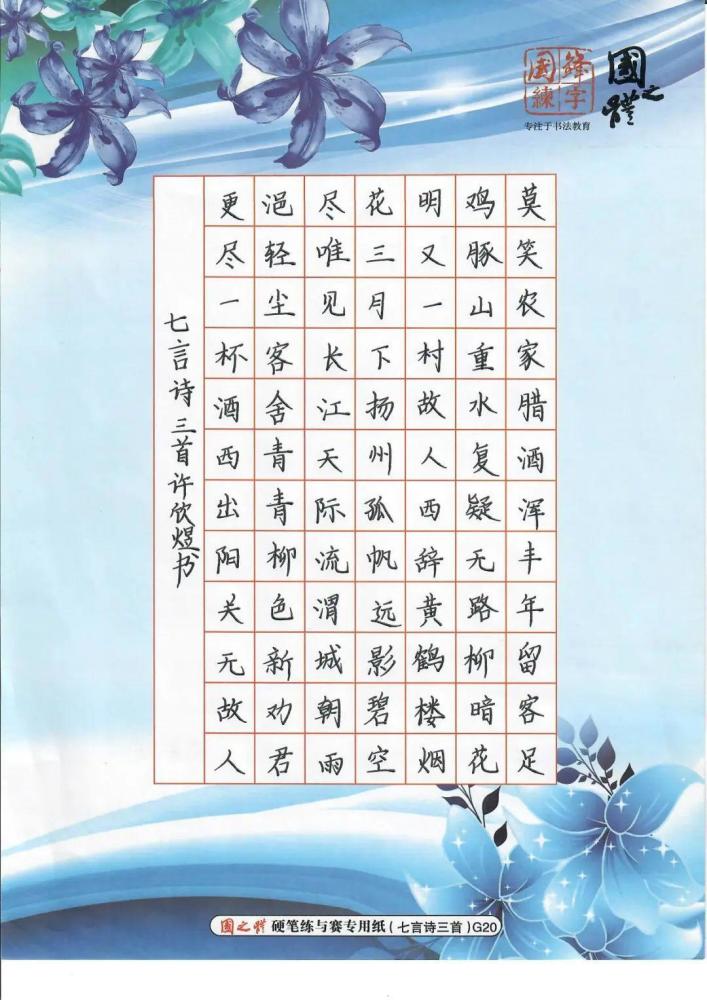 國之
专注于书法教育
莫笑农家腊酒浑丰年留客足
鸡豚山重水复疑无路柳暗花
明又一村故人西辞黄鹤楼烟
花三月下扬州孤帆远影碧空
尽唯见长江天际流渭城朝雨
浥轻尘客舍青青柳色新劝君
更尽一杯酒西出阳关无故人
七言诗三首许欣煜书
國之 硬笔练与赛专用纸(七言诗三首)G20